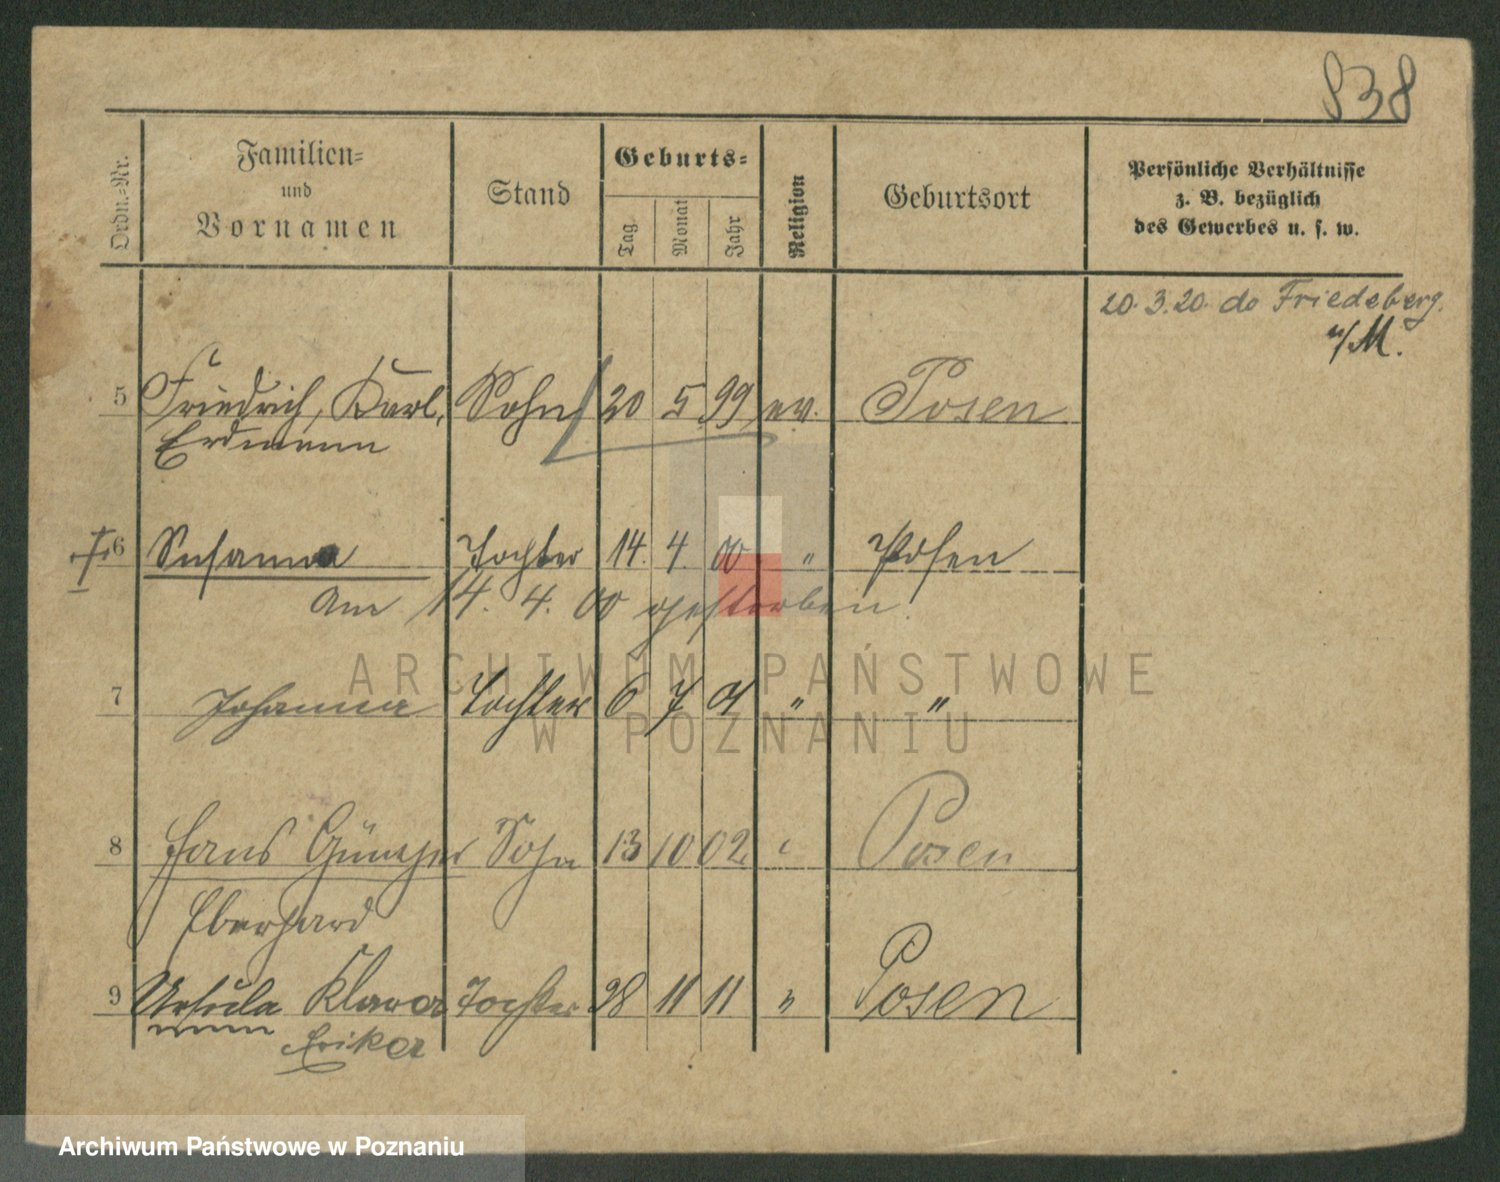 838
Ordn.-Nr. Familien- und Vornamen Stand Geburts- Tag Monat Jahr Religion Geburtsort Persönliche Verhältnisse z. B. bezüglich des Gewerbes u. s. w.
20. 3. 20. do Friedeberg.
n/M.
5 Friedrich, Karl, Sohn 20 5 99 ev. Posen
Erdmann
6 Susanna Tochter 14. 4. 00 " Posen
Am 14. 4. 00 gestorben.
7 Johanna Tochter 6 7 01 " "
8 Hans Günther Sohn 13 10 02 " Posen
Eberhard
9 Ursula Klara Tochter 28 11 11 " Posen
Erika
ARCHIWUM PAŃSTWOWE
W POZNANIU
Archiwum Państwowe w Poznaniu